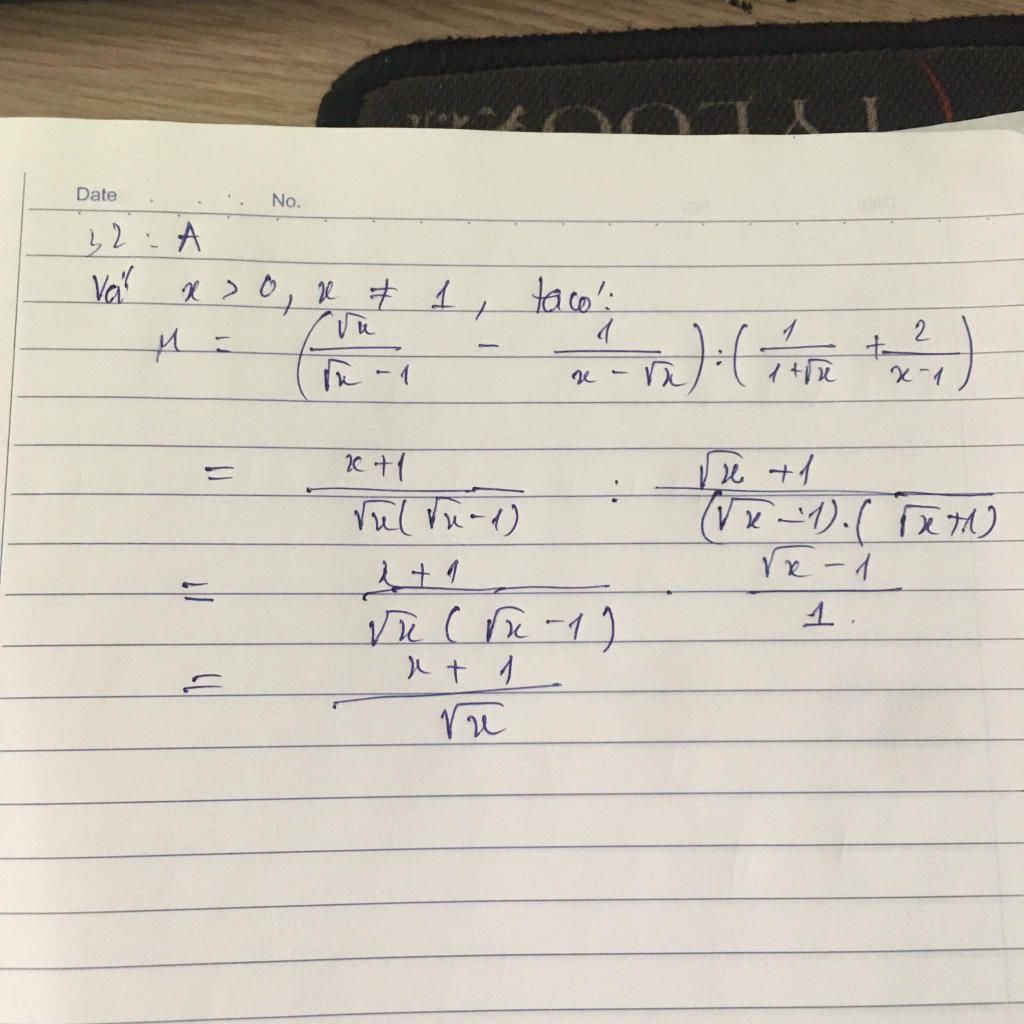 Date No.
32 : A
Với x > 0, x ≠ 1, ta có:
M = (√x/(√x - 1) - 1/(x - √x)) : (1/(1+√x) + 2/(x-1))
= (x+1)/(√x(√x-1)) : (√x +1)/((√x -1).(√x+1))
= (x + 1)/(√x (√x -1)) . (√x - 1)/1.
= (x + 1)/√x